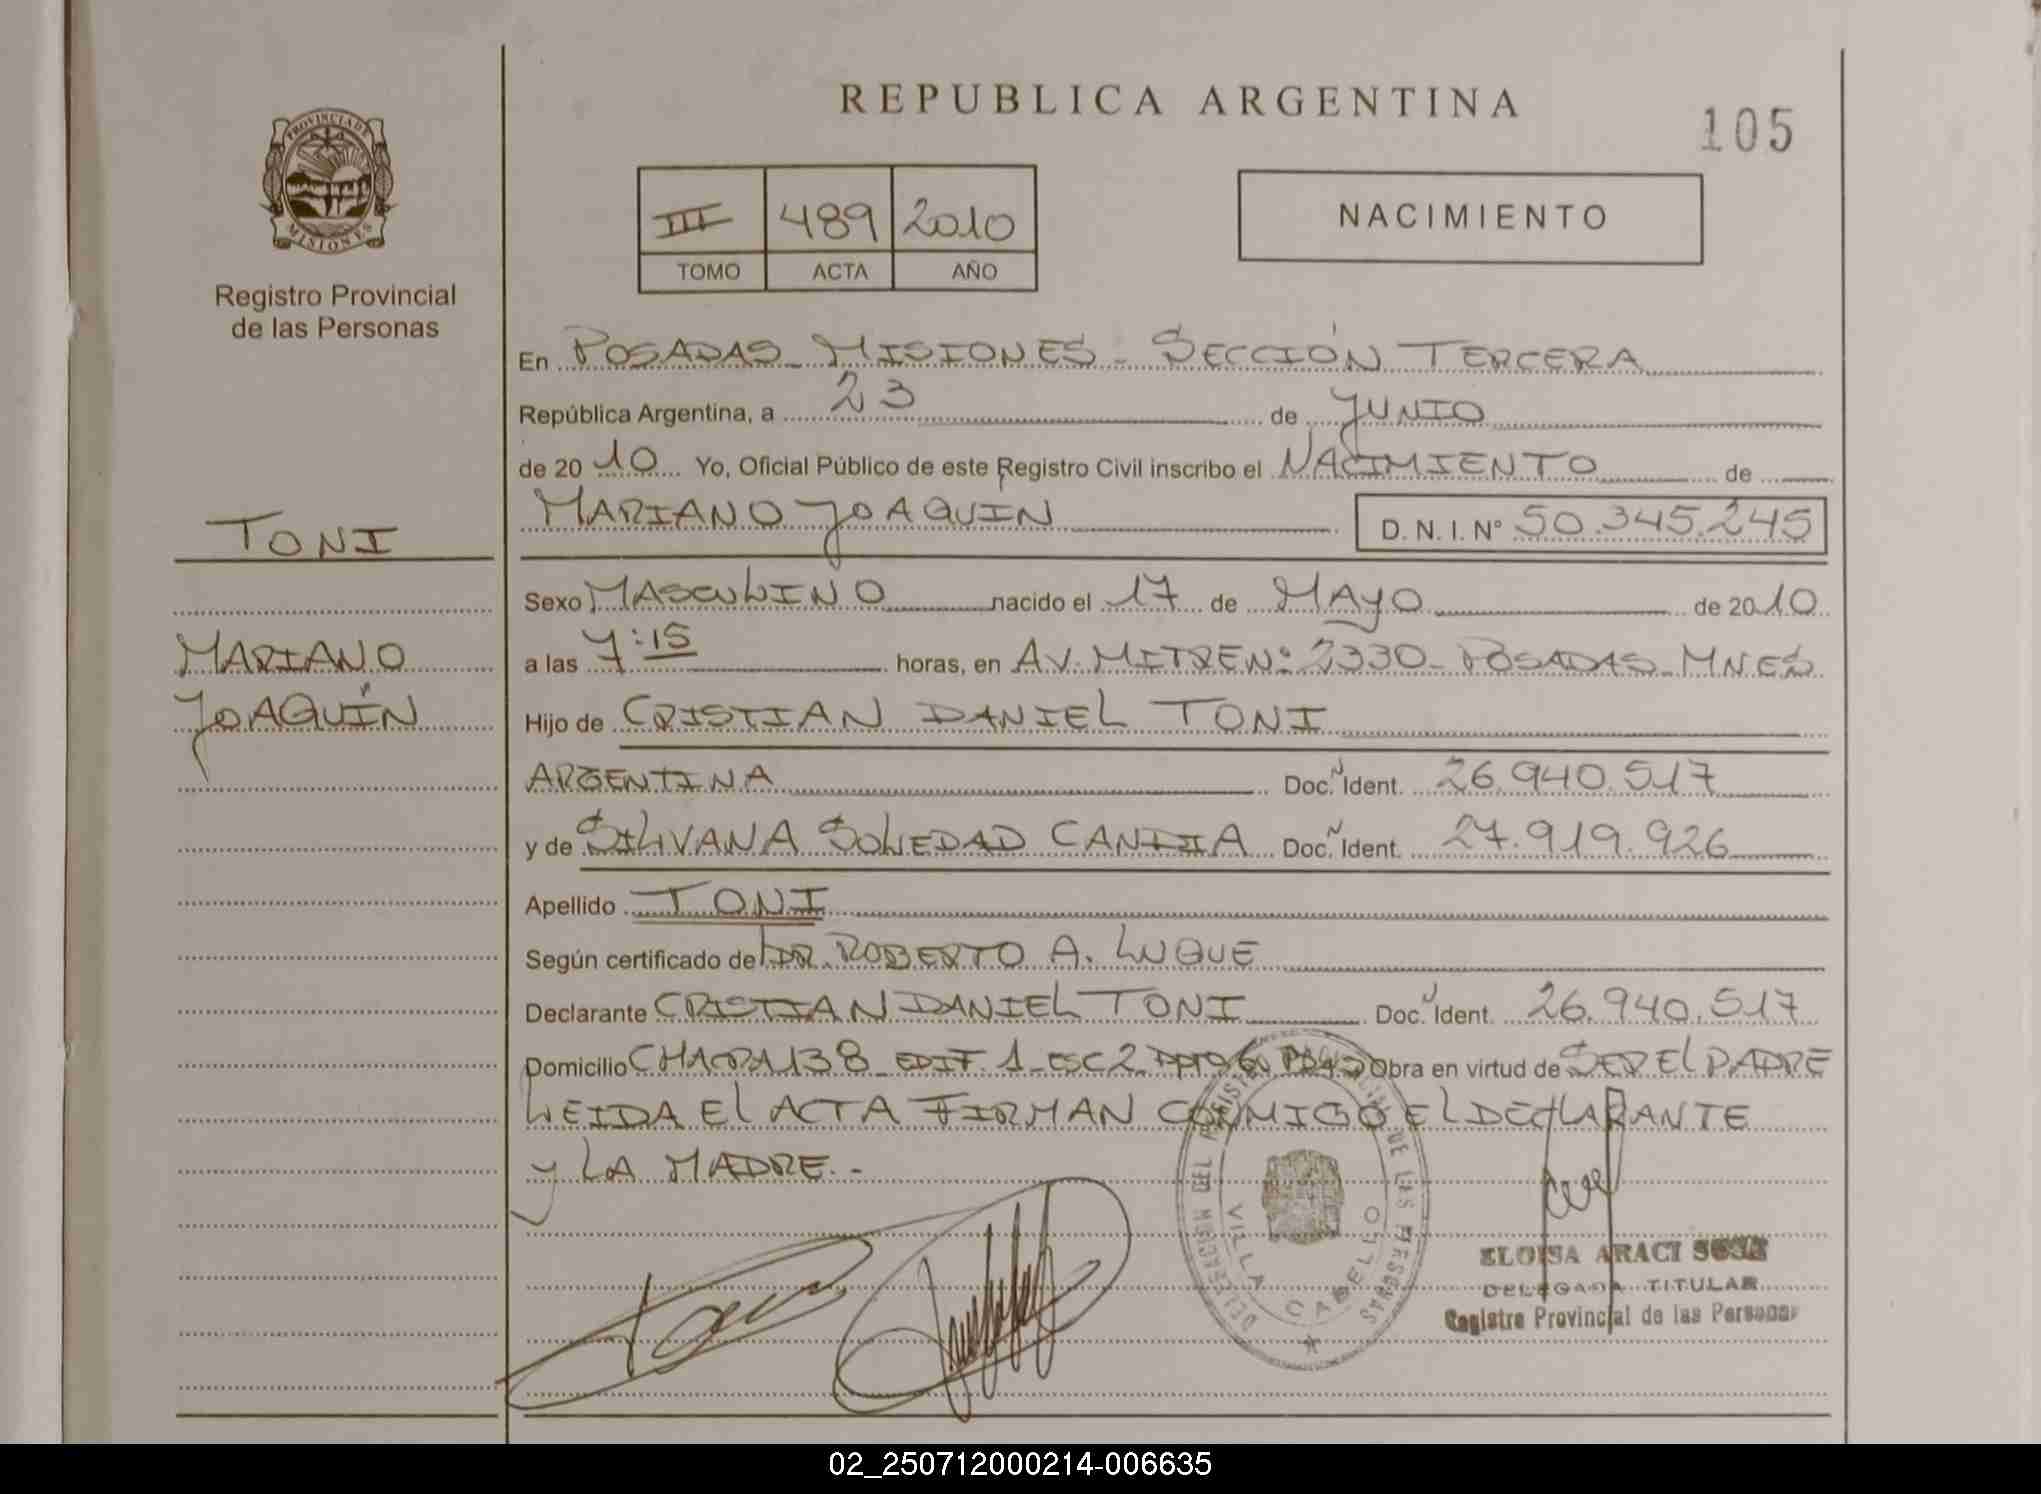 REPUBLICA ARGENTINA
105
PROVINCIA DE
MISIONES
Registro Provincial
de las Personas
III 489 2010
TOMO ACTA AÑO
NACIMIENTO
En POSADAS - MISIONES - SECCIÓN TERCERA
República Argentina, a 23 de JUNIO
de 2010 Yo, Oficial Público de este Registro Civil inscribo el NACIMIENTO de
MARIANO JOAQUIN D. N. I. Nº 50.345.245
TONI
MARIANO
JOAQUÍN
Sexo MASCULINO nacido el 17 de MAYO de 2010
a las 7:15 horas, en AV. MITRE Nº 2330 - POSADAS - MNES
Hijo de CRISTIAN DANIEL TONI
ARGENTINA Doc. Ident. 26.940.517
y de SILVANA SOLEDAD CANDIA Doc. Ident. 27.919.926
Apellido TONI
Según certificado de DR. ROBERTO A. LUQUE
Declarante CRISTIAN DANIEL TONI Doc. Ident. 26.940.517
Domicilio CHACRA 138 - EDIF. 1 - ESC 2 Obra en virtud de SER EL PADRE
LEIDA EL ACTA FIRMAN CONMIGO EL DECLARANTE
Y LA MADRE.-
DE LAS PERSONAS
VILLA CABELLO
ELOISA ARACI
DELEGADA TITULAR
Registro Provincial de las Personas
02_250712000214-006635